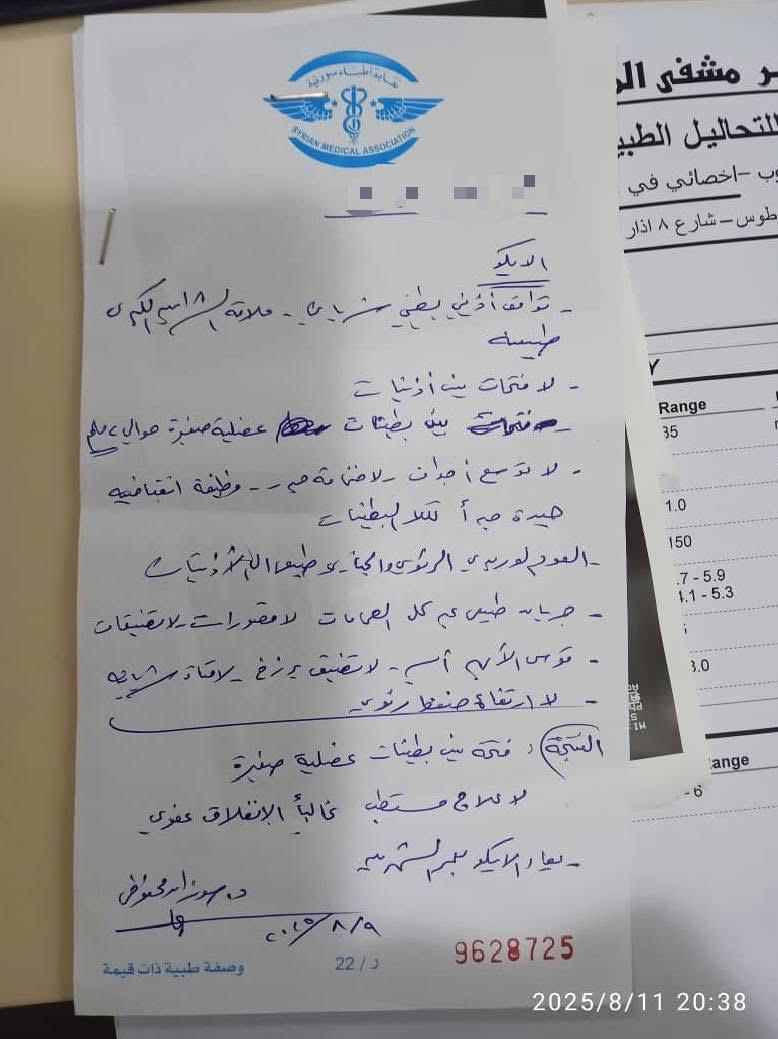 نقابة أطباء سورية
SYRIAN MEDICAL ASSOCIATION
الايكو
- توافق أذيني بطيني شرياني - علاقة الشرايين الكبرى
طبيعية
- لا فتحات بين أذينات
- فتحات بين بطينات عضلية صغيرة حوالي ٢ ملم
- لا توسع أجواف - لا ضخامة جدر - وظيفة انقباضية
جيدة جداً لكلا البطينات
- العود الوريدي الرئوي والجهازي طبيعي الأذينات
- جريان طبيعي عبر كل الصمامات لا قصورات - لا تضيقات
- قوس الأبهر أيسر - لا تضيق برزخ - لا قناة شريانية
- لا ارتفاع ضغط رئوي
النتيجة : فتحة بين بطينات عضلية صغيرة
لا علاج مستطب غالباً الانغلاق عفوي
- يعاد الايكو بعمر
د. سوزان محفوض
٢٠٢٥/٨/٩
وصفة طبية ذات قيمة
د / 22
9628725
ر مشفى
التحاليل الطبية
وب - اخصائي في
طوس - شارع ٨ اذار
Range
35
1.0
150
.7 - 5.9
4.1 - 5.3
3.0
ange
- 6
2025/8/11 20:38